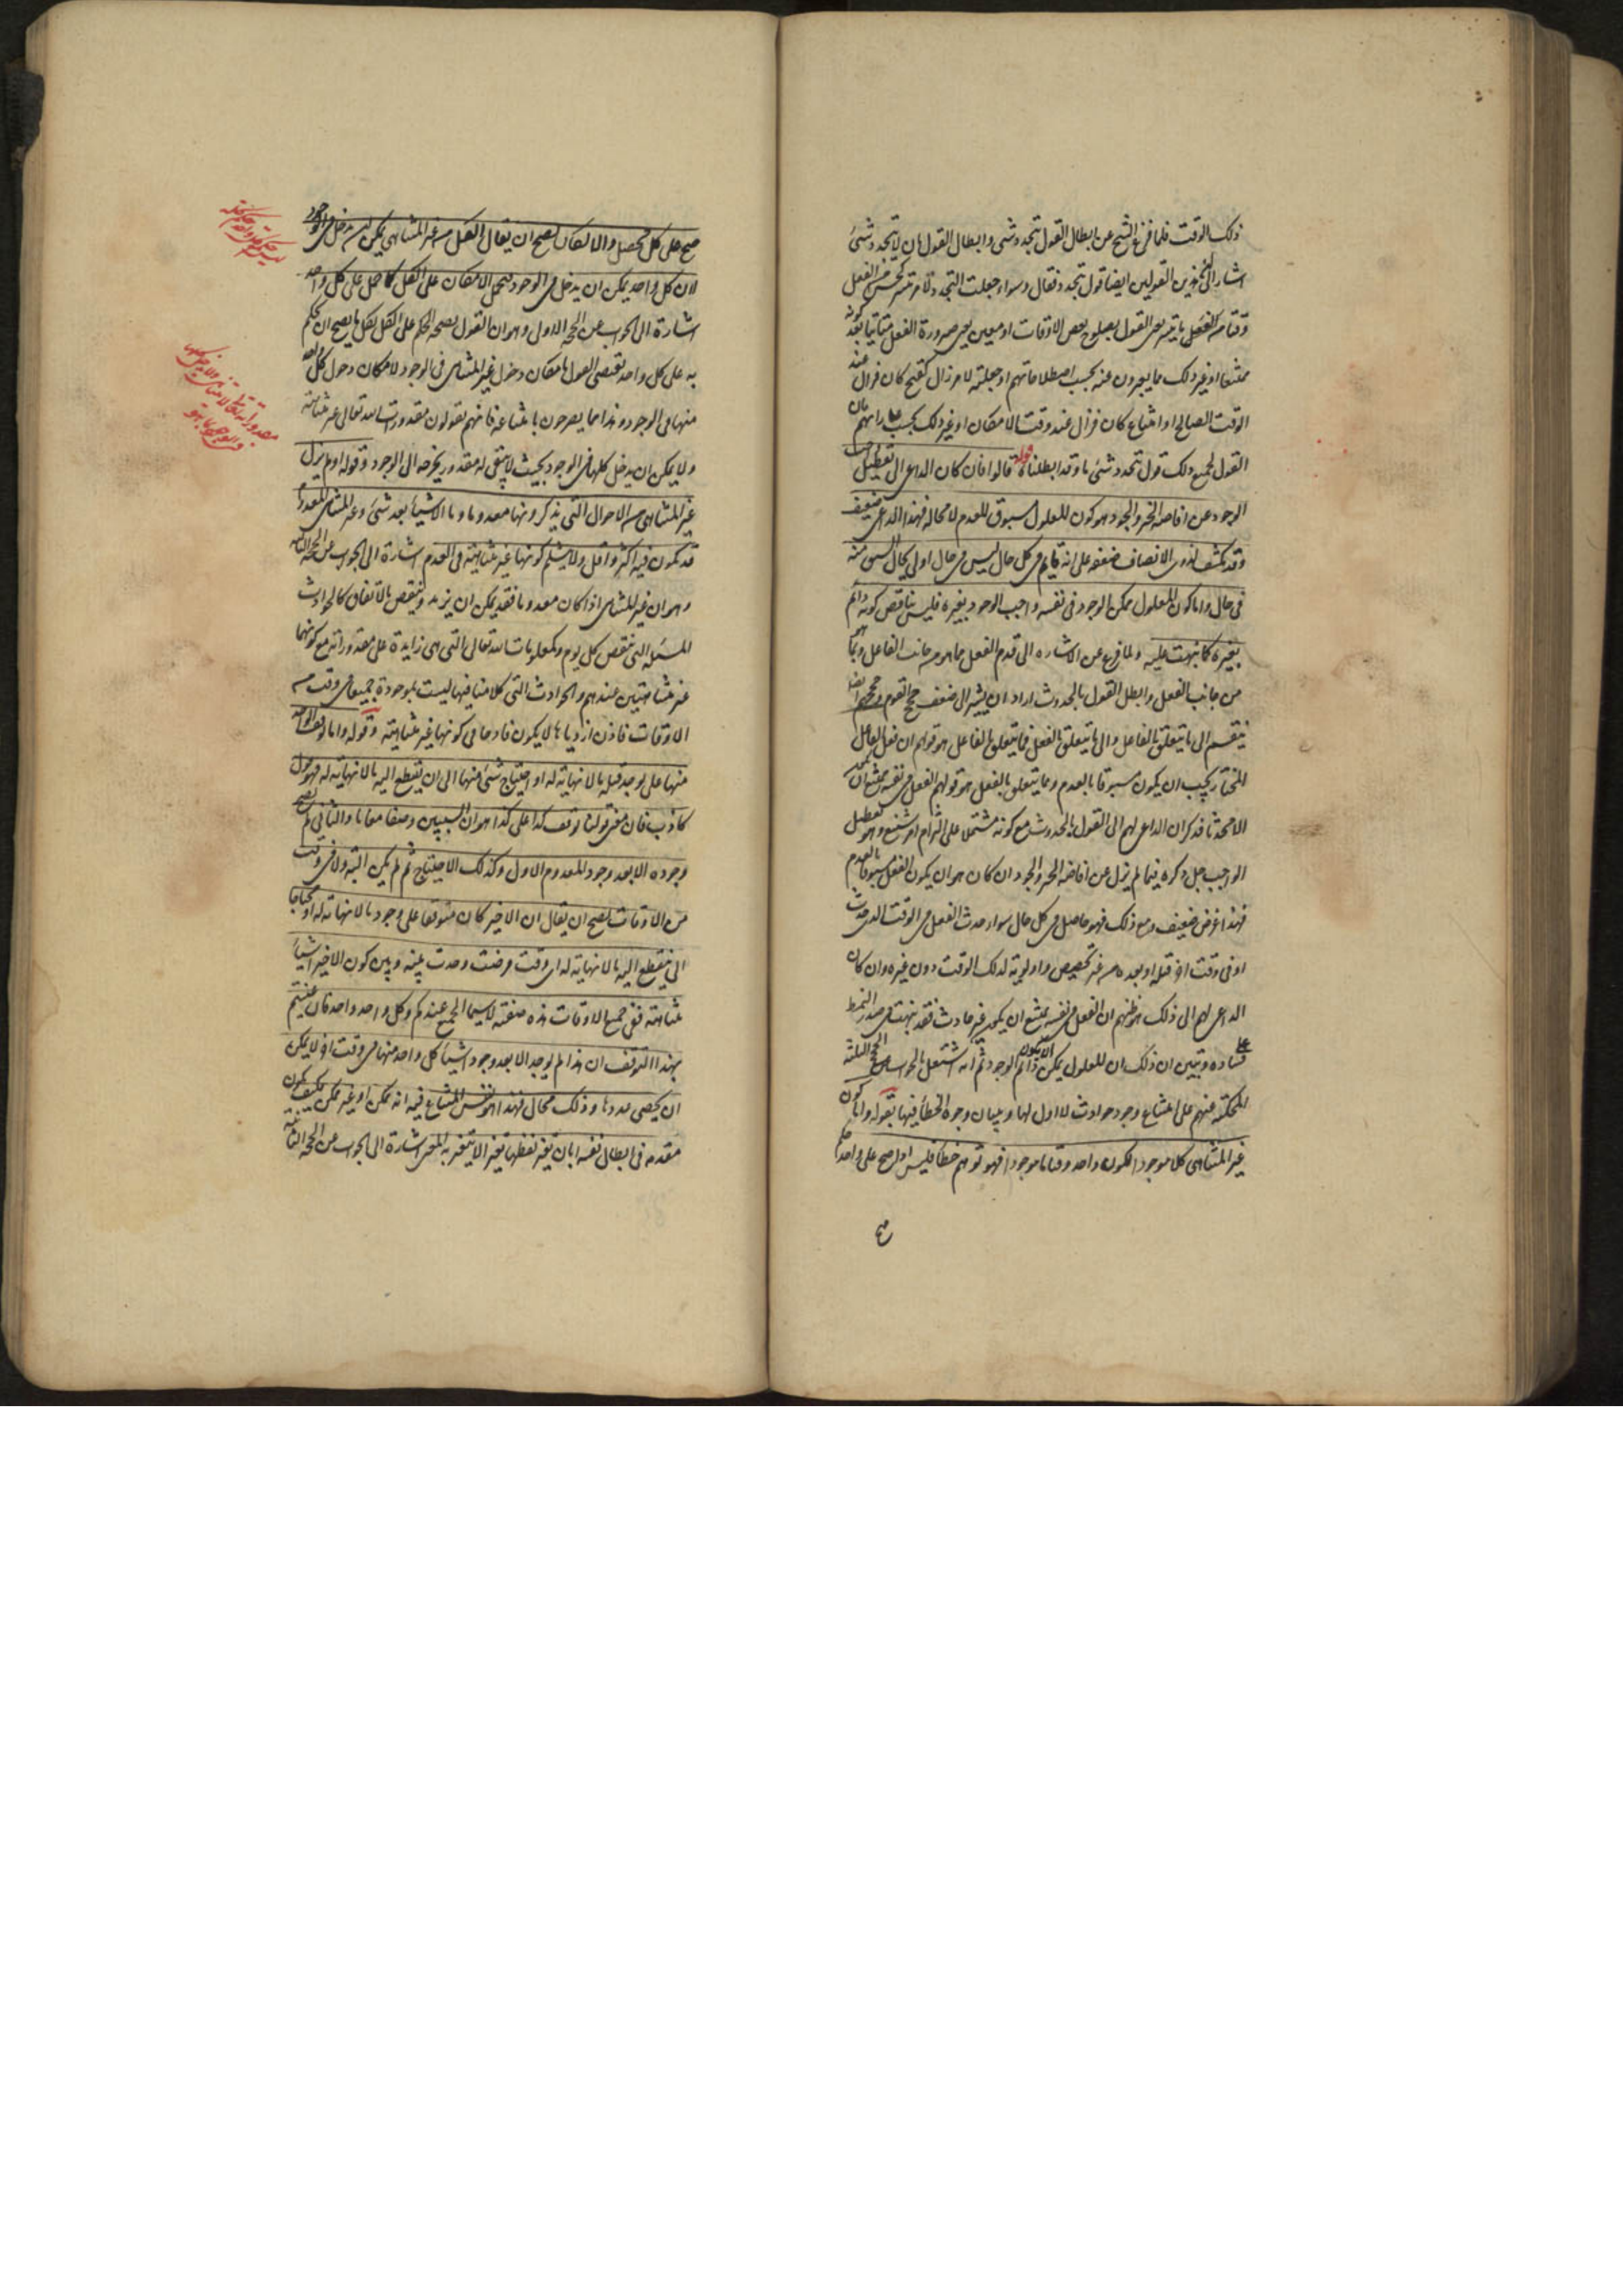 ذلك الوقت فلما فرغ الشيخ عن ابطال القول بتجدد شئ وابطال القول بان لا يتجدد شئ
اشار الى ان هذين القولين ايضا قول بتجدد فقال وسواء جعلت التجدد لامر تيسر كحسن من الفعل
وقتا ما تيسر يعنى القول بصلوح بعض الاوقات او معين يعنى صيرورة الفعل متاتيا بعد كونه
ممتنعا او غير ذلك مما يعبرون عنه بحسب اصطلاحاتهم او جعلته لامر زال كقبح كان فزال عند
الوقت الصالح او امتناع كان فزال عند وقت الامكان او غير ذلك بحسب رايهم فان
القول بجميع ذلك قول بتجدد شئ ما وقد ابطلناه قوله قالوا فان كان الداعى الى تعطيل
الوجود عن افاضة الخير والجود هو كون المعلول مسبوق العدم لا محالة فهذا الداعى ضعيف
وقد يكشف لذوى الانصاف ضعفه على انه قائم فى كل حال ليس فى حال اولى بحال السبق منه
فى حال واما كون المعلول ممكن الوجود فى نفسه واجب الوجود بغيره فليس يناقض كونه دائم
بغيره كما نبهت عليه ولما فرغ عن الاشاره الى قدم الفعل مما هو من جانب الفاعل ومما هو
من جانب الفعل وابطل القول بالحدوث اراد ان يشير الى ضعف حجج القوم وحججهم ايضا
ينقسم الى ما يتعلق بالفاعل والى ما يتعلق بالفعل فما يتعلق بالفاعل هو قولهم ان فعل الفاعل
المختار يجب ان يكون مسبوقا بالعدم وما يتعلق بالفعل هو قولهم الفعل فى نفسه يمتنع ان يكون
الا محدثا فذكر ان الداعى لهم الى القول بالحدوث مع كونه مشتملا على التزام امر شنيع وهو تعطيل
الواجب جل ذكره فيما لم يزل عن افاضة الخير والجود ان كان هو ان يكون الفعل مسبوقا بالعدم
فهذا غرض ضعيف ومع ذلك فهو حاصل فى كل حال سواء حدث الفعل فى الوقت الذى حدث
او فى وقت اخر قبله او بعده من غير تخصيص واولوية لذلك الوقت دون غيره وان كان
الداعى لهم الى ذلك هو ظنهم ان الفعل فى نفسه يمتنع ان يكون غير حادث فقد نبهت فى صدر النمط
على فساده وتبين ان ذلك ان المعلول يمكن ان يكون دائم الوجود ثم انه اشتغل بالجواب عن الحجج الثلثة
المحكية عنهم على امتناع وجود حوادث لا اول لها وبيان وجوه الخطأ فيها بقوله واما كون
غير المتناهى كلا موجودا لكون واحد وقتا ما موجودا فهو توهم خطأ فليس اذا صح على واحد
صح على كل محصل والا لكان يصح ان يقال الكل من غير المتناهى يمكن ان يدخل فى الوجود
لان كل واحد يمكن ان يدخل فى الوجود فيحمل الامكان على الكل كما حمل على كل واحد
اشارة الى الجواب عن الحجة الاولى وهو ان القول بصحة الحكم على الكل بكل ما يصح ان يحكم
به على كل واحد يقتضى القول بامكان دخول غير المتناهى فى الوجود لامكان دخول كل واحد
منها فى الوجود وهذا مما يصرحون بامتناعه فانهم يقولون مقدورات الله تعالى غير متناهية
ولا يمكن ان يدخل كلها فى الوجود بحيث لا يبقى له مقدور يخرجه الى الوجود وقوله او لم يزل
غير المتناهى من الاحوال التى يذكرونها معدوما وما الا شيئا بعد شئ وغير المتناهى المعدوم
قد يكون فيه اكثر واقل ولا يثلم كونها غير متناهية فى العدم اشارة الى الجواب عن الحجة الثانية
وهو ان غير المتناهى اذا كان معدوما فقد يمكن ان يزيد وينقص بالاتفاق كالحوادث
المستقبلة التى تنقص كل يوم وكمعلومات الله تعالى التى هى زايدة على مقدوراته مع كونهما
غير متناهيتين عندهم والحوادث التى كلامنا فيها ليست بموجودة جميعا فى وقت من
الاوقات فاذن ازديادها لا يكون قادحا فى كونها غير متناهية وقوله واما توقف الواحد
منها على يوجد قبله ما لا نهاية له او احتياج شئ منها الى ان ينقطع اليه ما لا نهاية له فهو قول
كاذب فان معنى قولنا توقف كذا على كذا هو ان الشيئين وصفا معا بالعدم والثانى لم يصح
وجوده الا بعد وجود المعدوم الاول وكذلك الاحتياج ثم لم يكن البتة ولا فى وقت
من الاوقات يصح ان يقال ان الاخير كان متوقفا على وجود ما لا نهاية له او محتاجا
الى ينقطع اليه ما لا نهاية له اى وقت فرضت وجدت بينه وبين كون الاخير اشياء
متناهية ففى جميع الاوقات هذه صفته لا سيما الجميع عندكم وكل واحد واحد فان عنيتم
بهذا التوقف ان هذا لم يوجد الا بعد وجود اشياء كل واحد منها فى وقت اخر لا يمكن
ان يحصى عددها وذلك محال فهذا هو نفس المتنازع فيه انه ممكن او غير ممكن فكيف يكون
مقدمة فى ابطال نفسه ابان يغير لفظها تغيرا لا يتغير به المعنى اشارة الى الجواب عن الحجة الثالثة